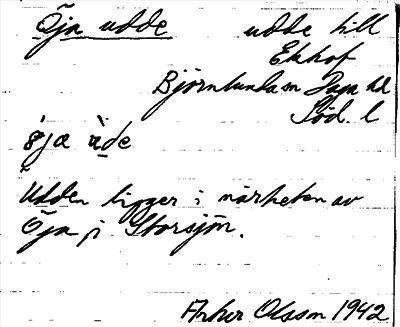 Öja udde
udde till
Ekhof
Björnlunda sn Daga hd
Söd. l
öja ùde
Udden ligger i närheten av
Öja, i Storsjön.
Artur Olsson 1942